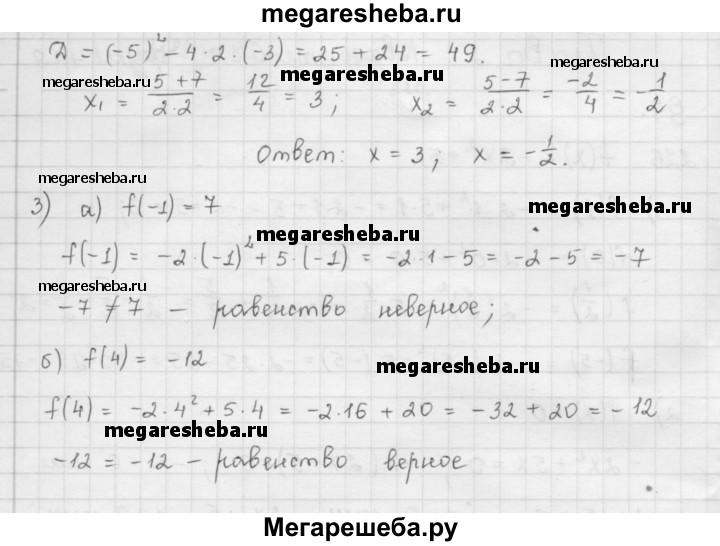 megaresheba.ru
Д = (-5)² - 4·2·(-3) = 25 + 24 = 49.
megaresheba.ru megaresheba.ru
x₁ = (5+7)/(2·2) = 12/4 = 3; x₂ = (5-7)/(2·2) = -2/4 = -1/2
Ответ: x = 3; x = -1/2.
megaresheba.ru
megaresheba.ru
3) а) f(-1) = 7
megaresheba.ru
f(-1) = -2·(-1)² + 5·(-1) = -2·1 - 5 = -2 - 5 = -7
megaresheba.ru
-7 ≠ 7 - равенство неверное;
б) f(4) = -12
megaresheba.ru
f(4) = -2·4² + 5·4 = -2·16 + 20 = -32 + 20 = -12
megaresheba.ru
-12 = -12 - равенство верное
Мегарешеба.ру